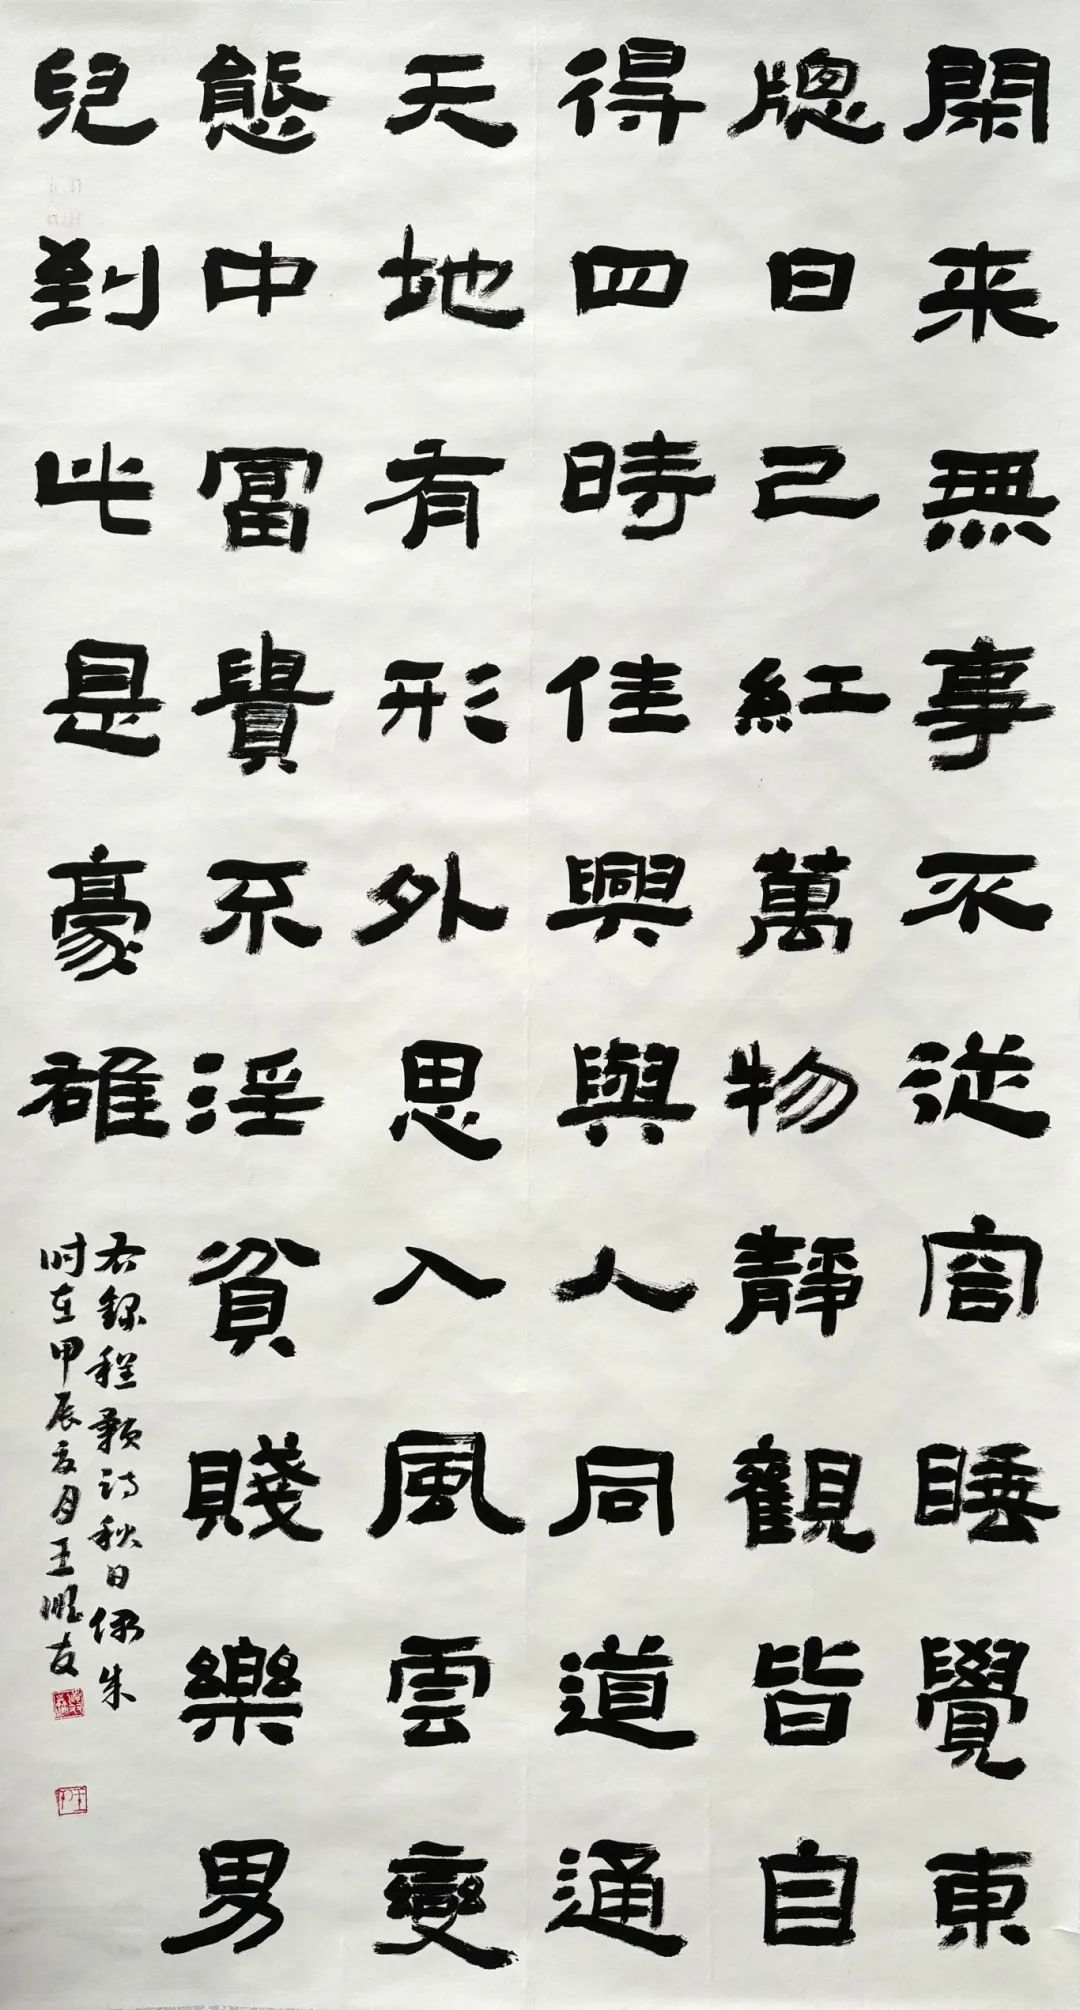 閑来無事不從容睡覺東
牕日已紅萬物靜觀皆自
得四時佳興與人同道通
天地有形外思入風雲變
態中富貴不淫貧賤樂男
兒到此是豪雄
右録程颢詩秋日偶成
时在甲辰夏月王友